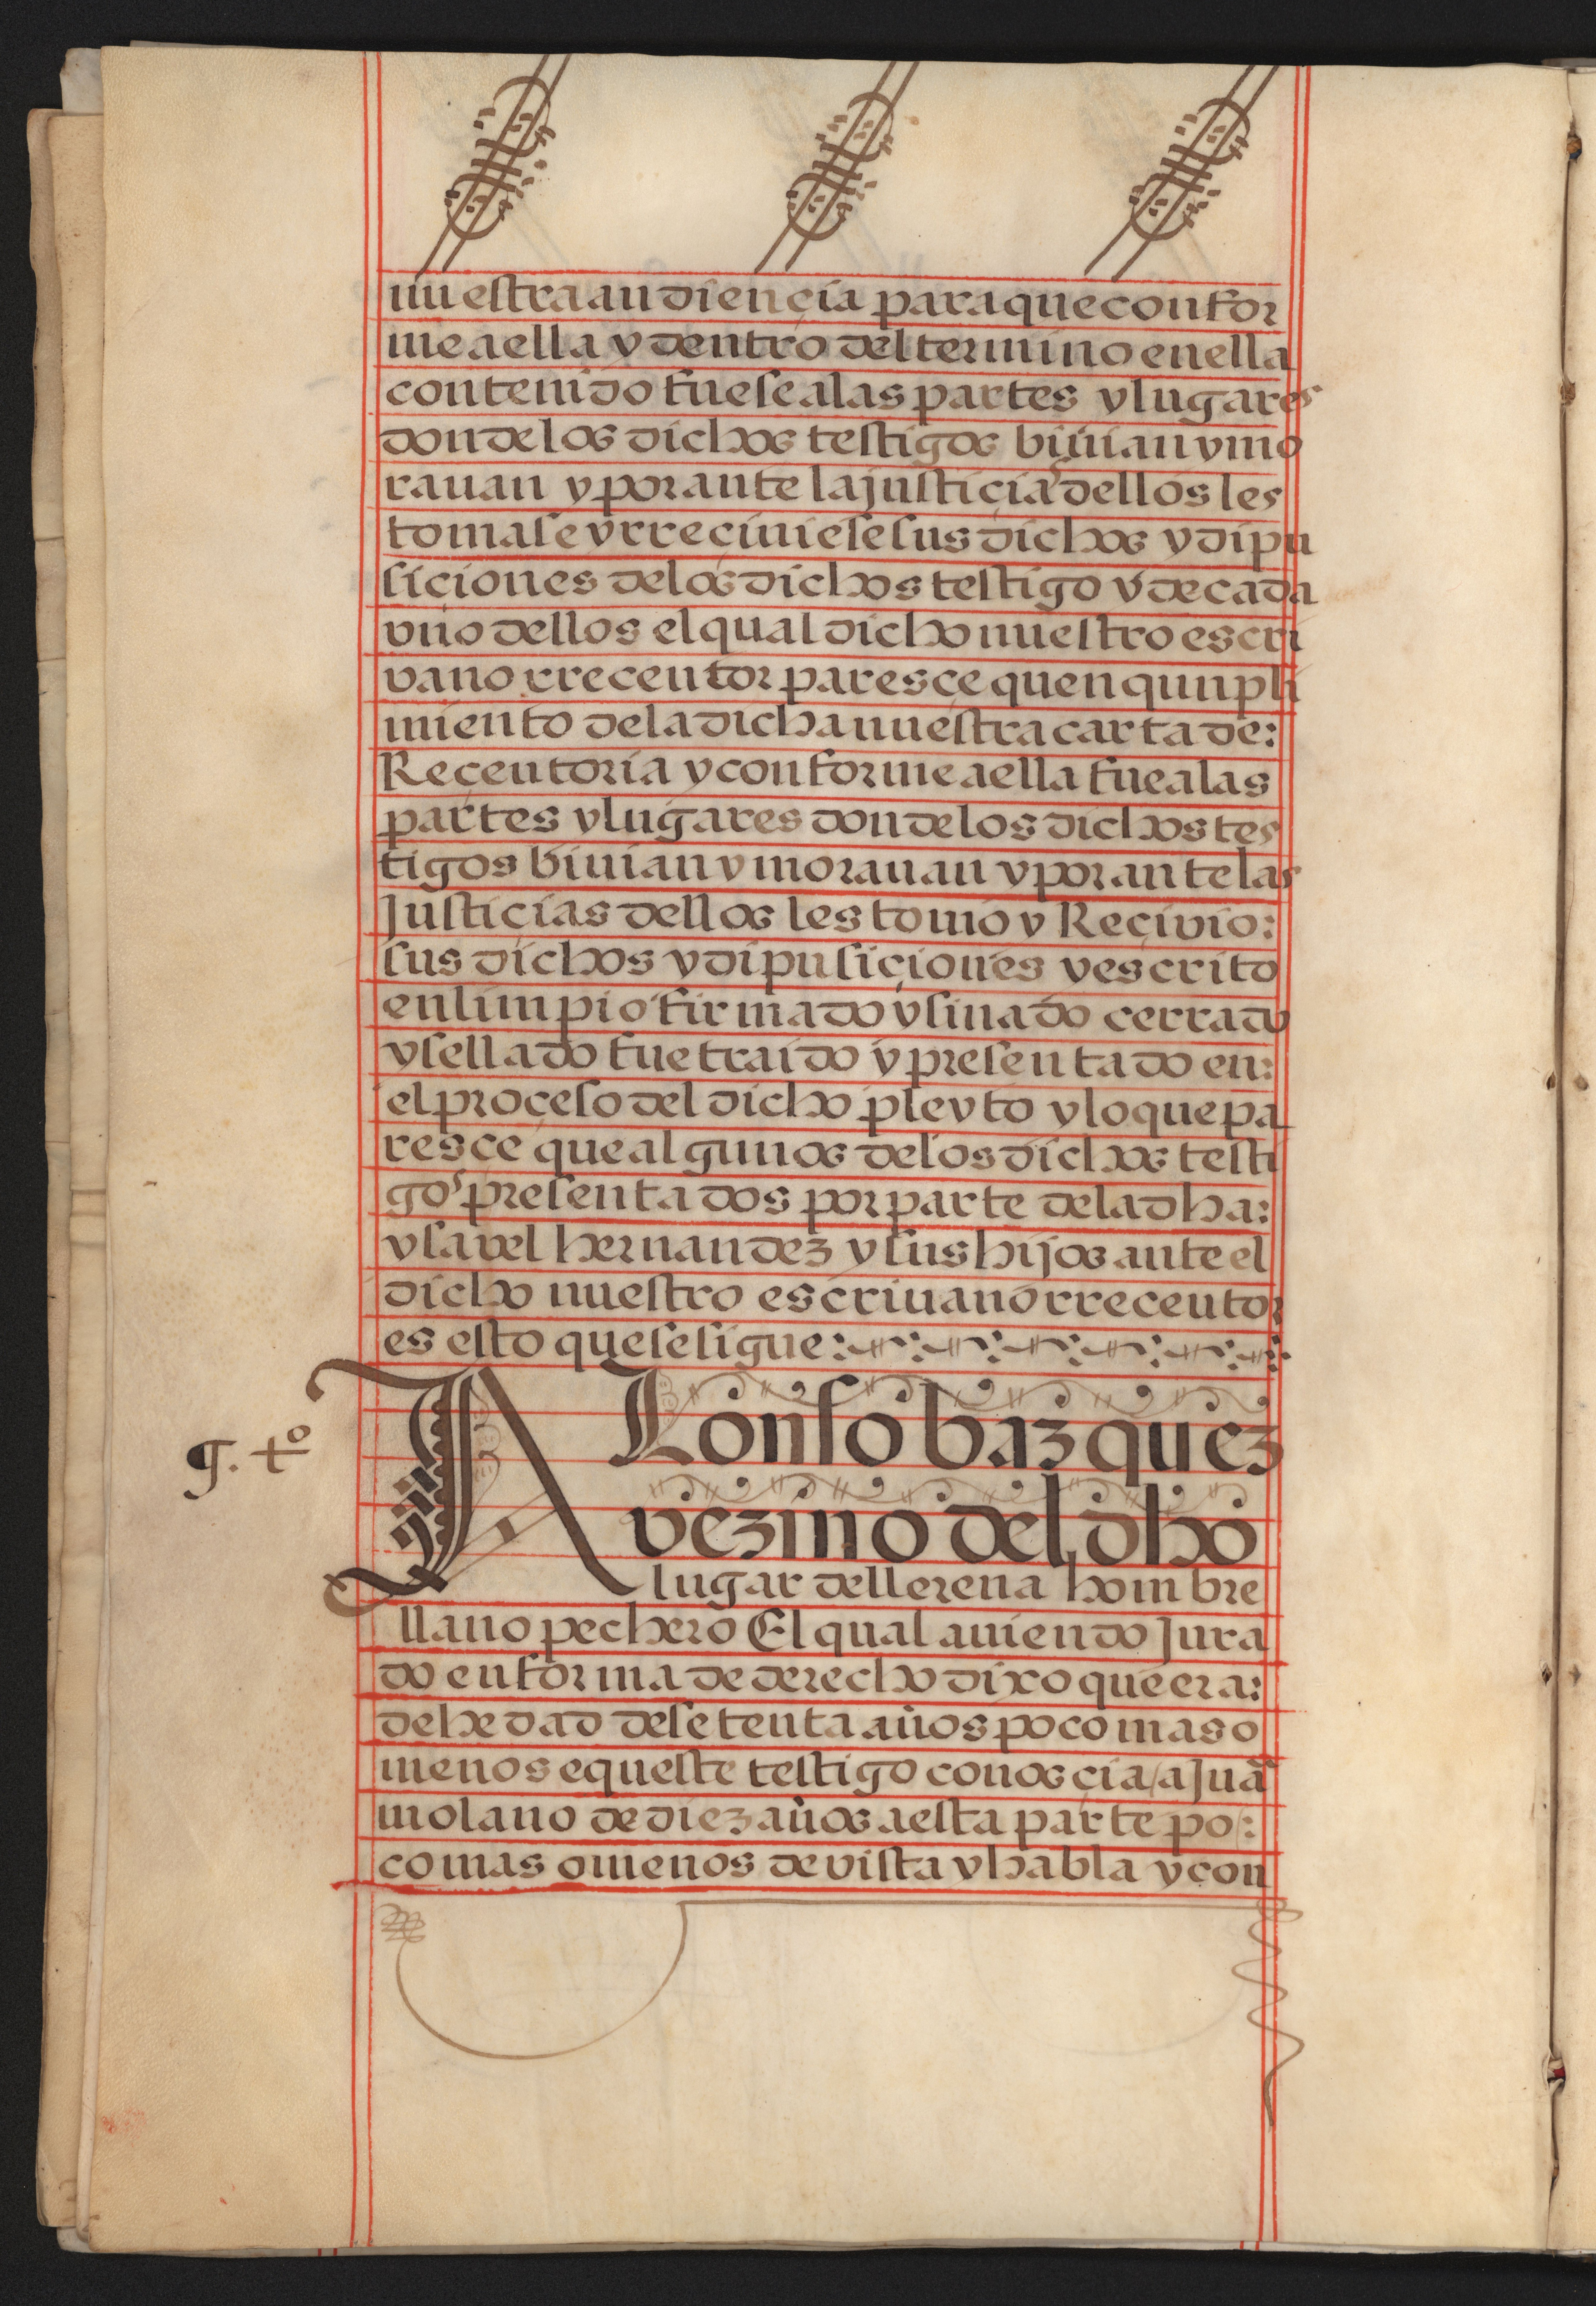 nuestra audiençia para que confor
me a ella y dentro del termino en ella
contenido fuese a las partes y lugares
donde los dichos testigos biuian y mo
rauan y por ante la justiçia dellos les
tomase y rreçiuiese sus dichos y dipu
siçiones de los dichos testigo y de cada
vno dellos el qual dicho nuestro escri
vano rreceutor paresce quen qunpli
miento de la dicha nuestra carta de:
Reçeutoria y conforme a ella fue a las
partes y lugares donde los dichos tes
tigos biuian y morauan y por ante las
Justiçias dellos les tomo y Reçivio:
sus dichos y dipusiçiones y escrito
en limpio firmado y sinado cerrado
y sellado fue traido y presentado en:
el proçeso del dicho pleyto y lo que pa
resce que algunos de los dichos testi
gos presentados por parte de la dha:
ysavel hernandez y sus hijos ante el
dicho nuestro escriuano rreceutor
es esto que se sigue:
g. tº
ALonso bazquez
vezino del dho
lugar de llerena hombre
llano pechero El qual auiendo Jura
do en forma de derecho dixo que era:
de hedad de setenta años poco mas o
menos e queste testigo conoscia / a Juā
molano de diez años a esta parte po:
co mas o menos de vista y habla y con